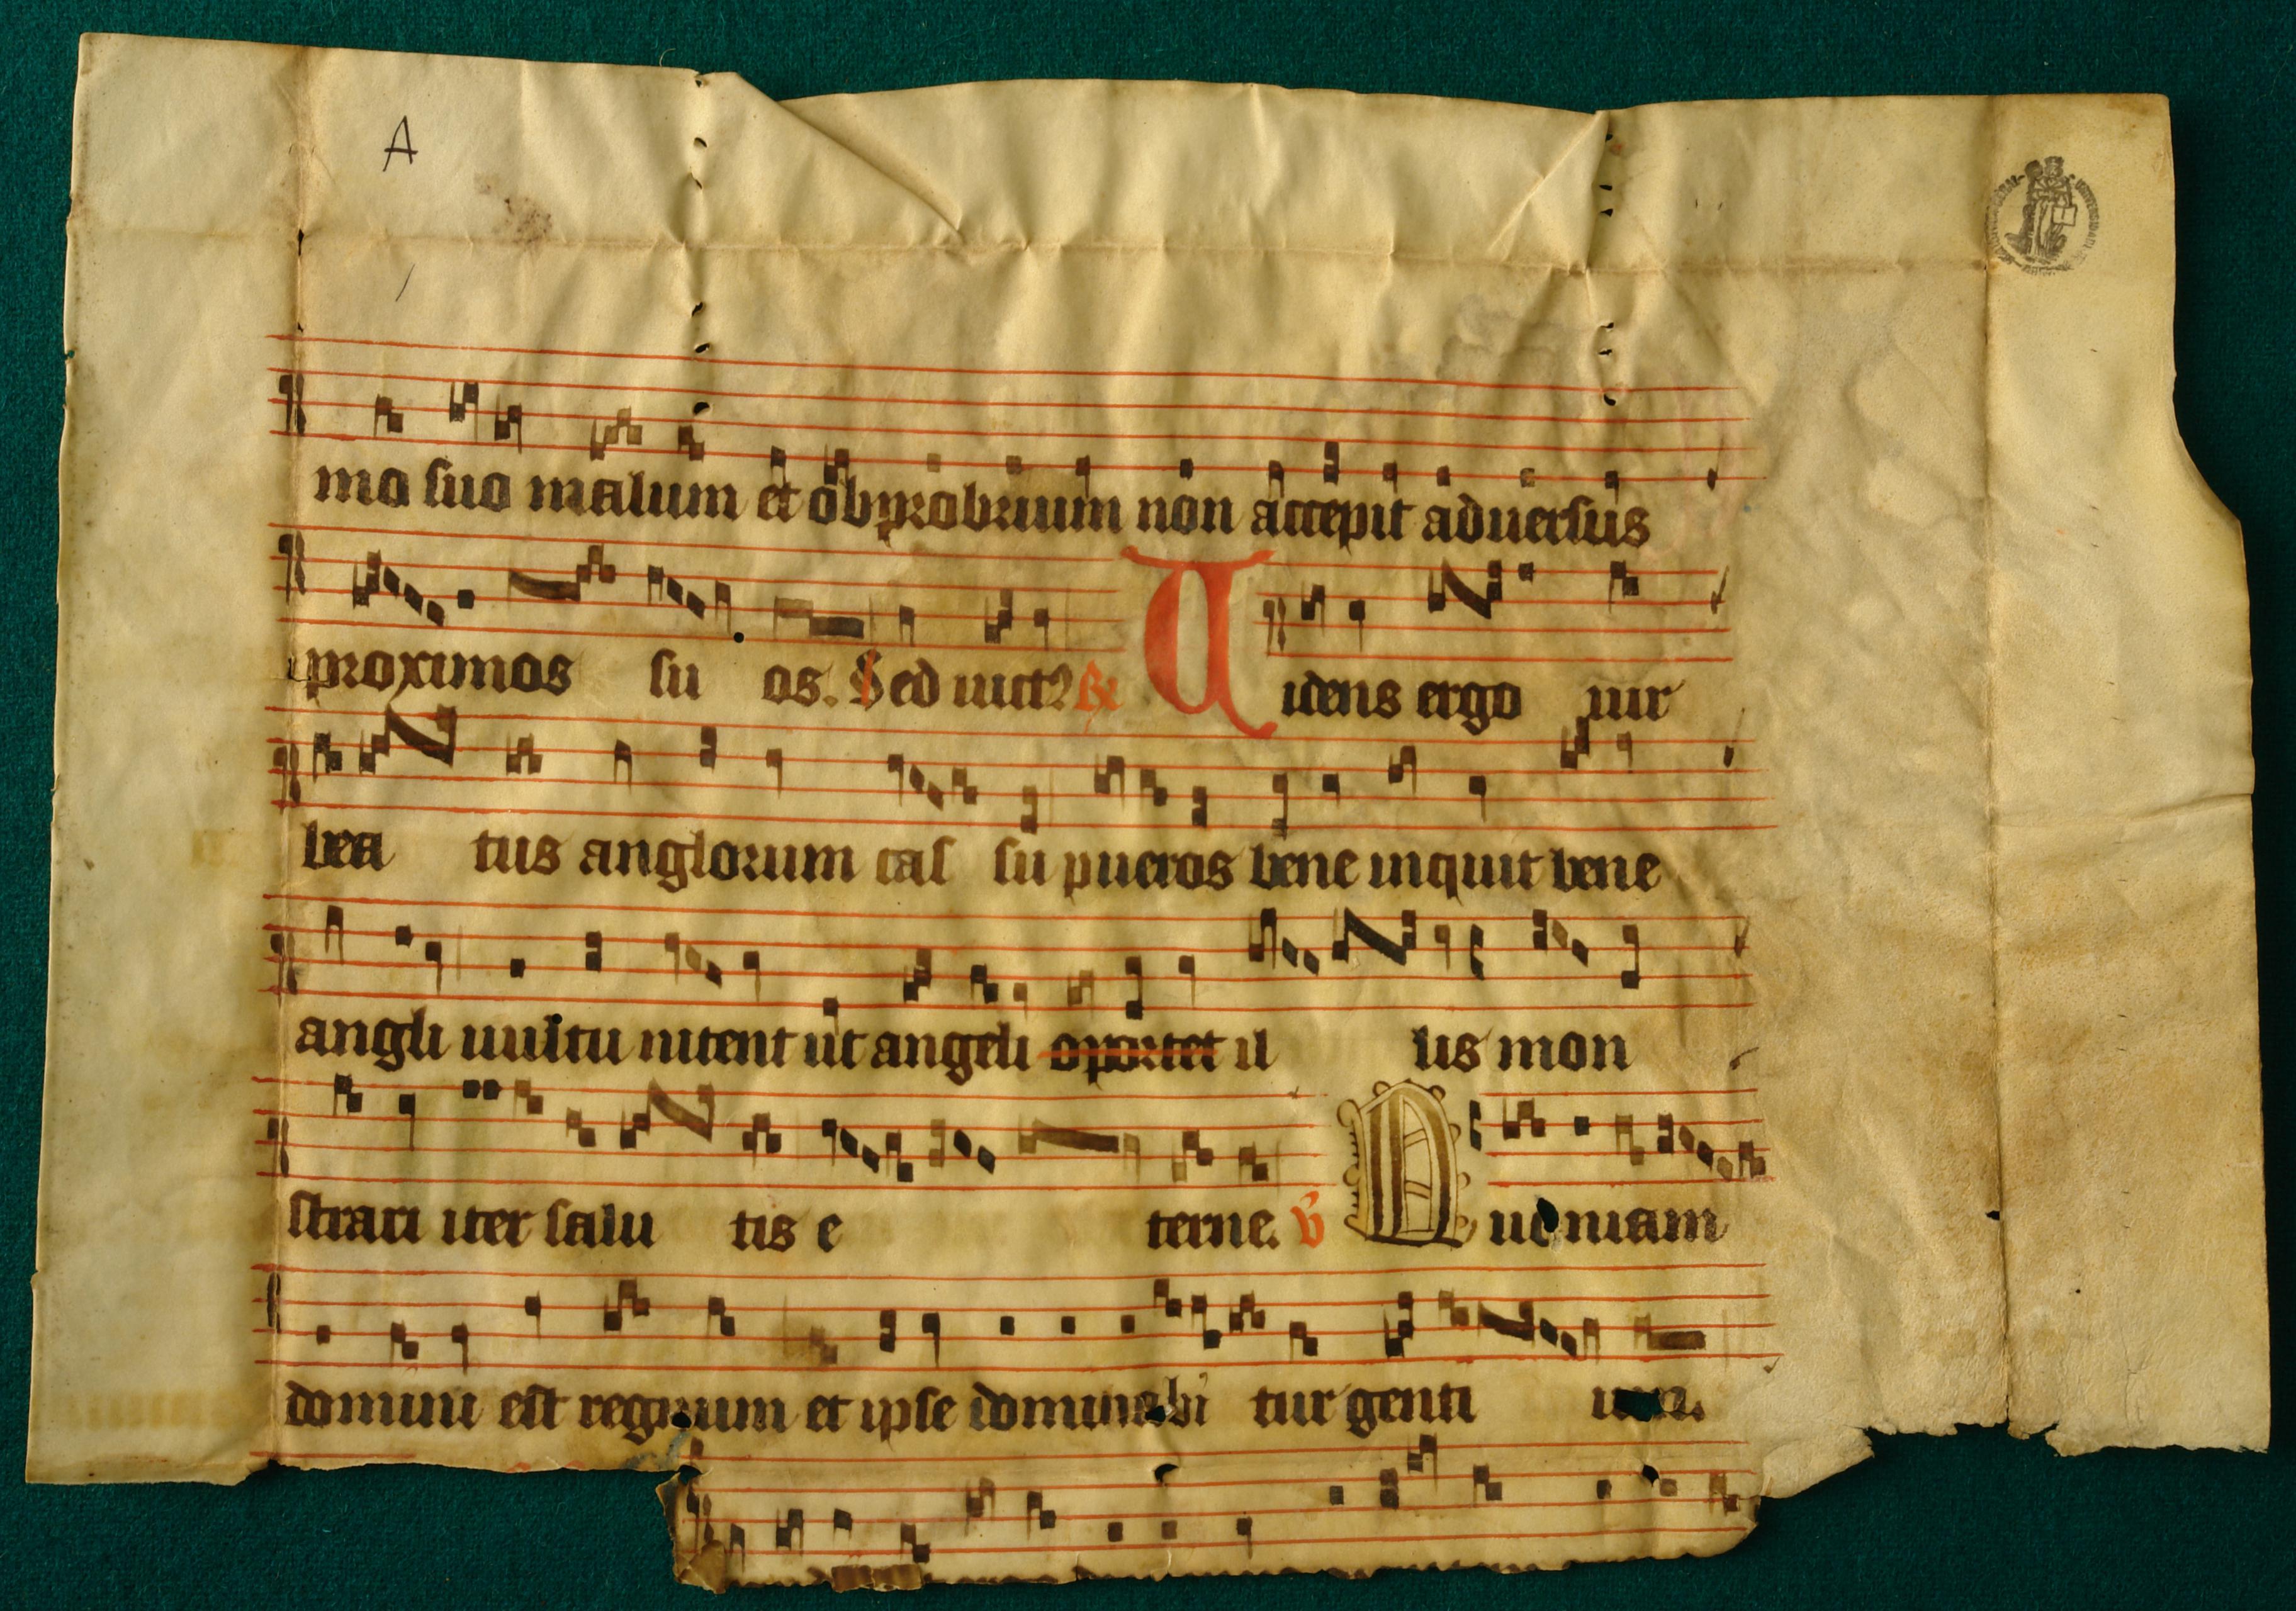 A
mo suo malum et obprobrium non accepit aduersus
proximos su os. Sed iuct? R Uidens ergo uir
bea tus anglorum cas su pueros bene inquit bene
angli uultu nitent ut angeli oportet il lis mon
strari iter salu tis e terne. v Quoniam
domini est regnum et ipse dominabi tur genti um.